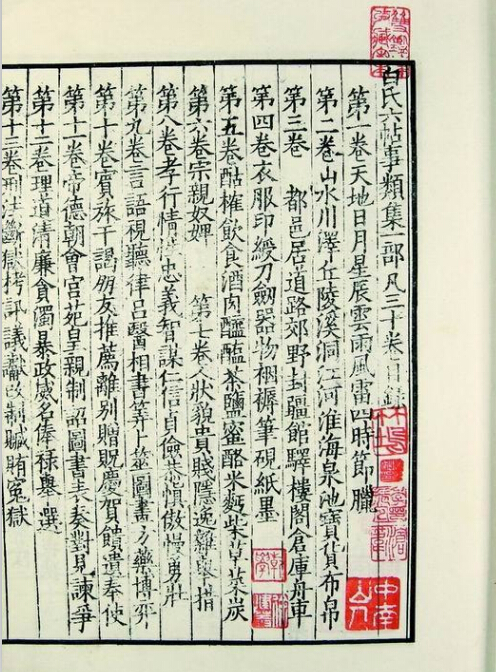 白氏六帖事類集一部凡三十卷目錄
第一卷天地日月星辰雲雨風雷四時節臘
第二卷山水川澤丘陵溪洞江河淮海泉池寶貨布帛
第三卷 都邑居道路郊野封疆館驛樓閣倉庫舟車
第四卷衣服印綬刀劒器物棞褥筆硯紙墨
第五卷酤榷飲食酒肉醯醢茶鹽蜜酪米麪柴草菜炭
第六卷宗親奴婢 第七卷人狀貌貴賤隱逸雜舉措
第八卷孝行情忠義智謀仁信貞儉恭慎傲慢勇壯
第九卷言語視聽律呂醫相書筭卜筮圖畫方藥博弈
第十卷賓旅干謁朋友推薦離別贈貺慶賀饋遺奉使
第十一卷帝德朝會宮苑皇親制詔圖書表奏對見諫爭
第十二卷理道清廉貪濁暴政威名俸祿舉選
第十三卷刑法斷獄拷訊議讞赦制贓賄寃獄
中南山人